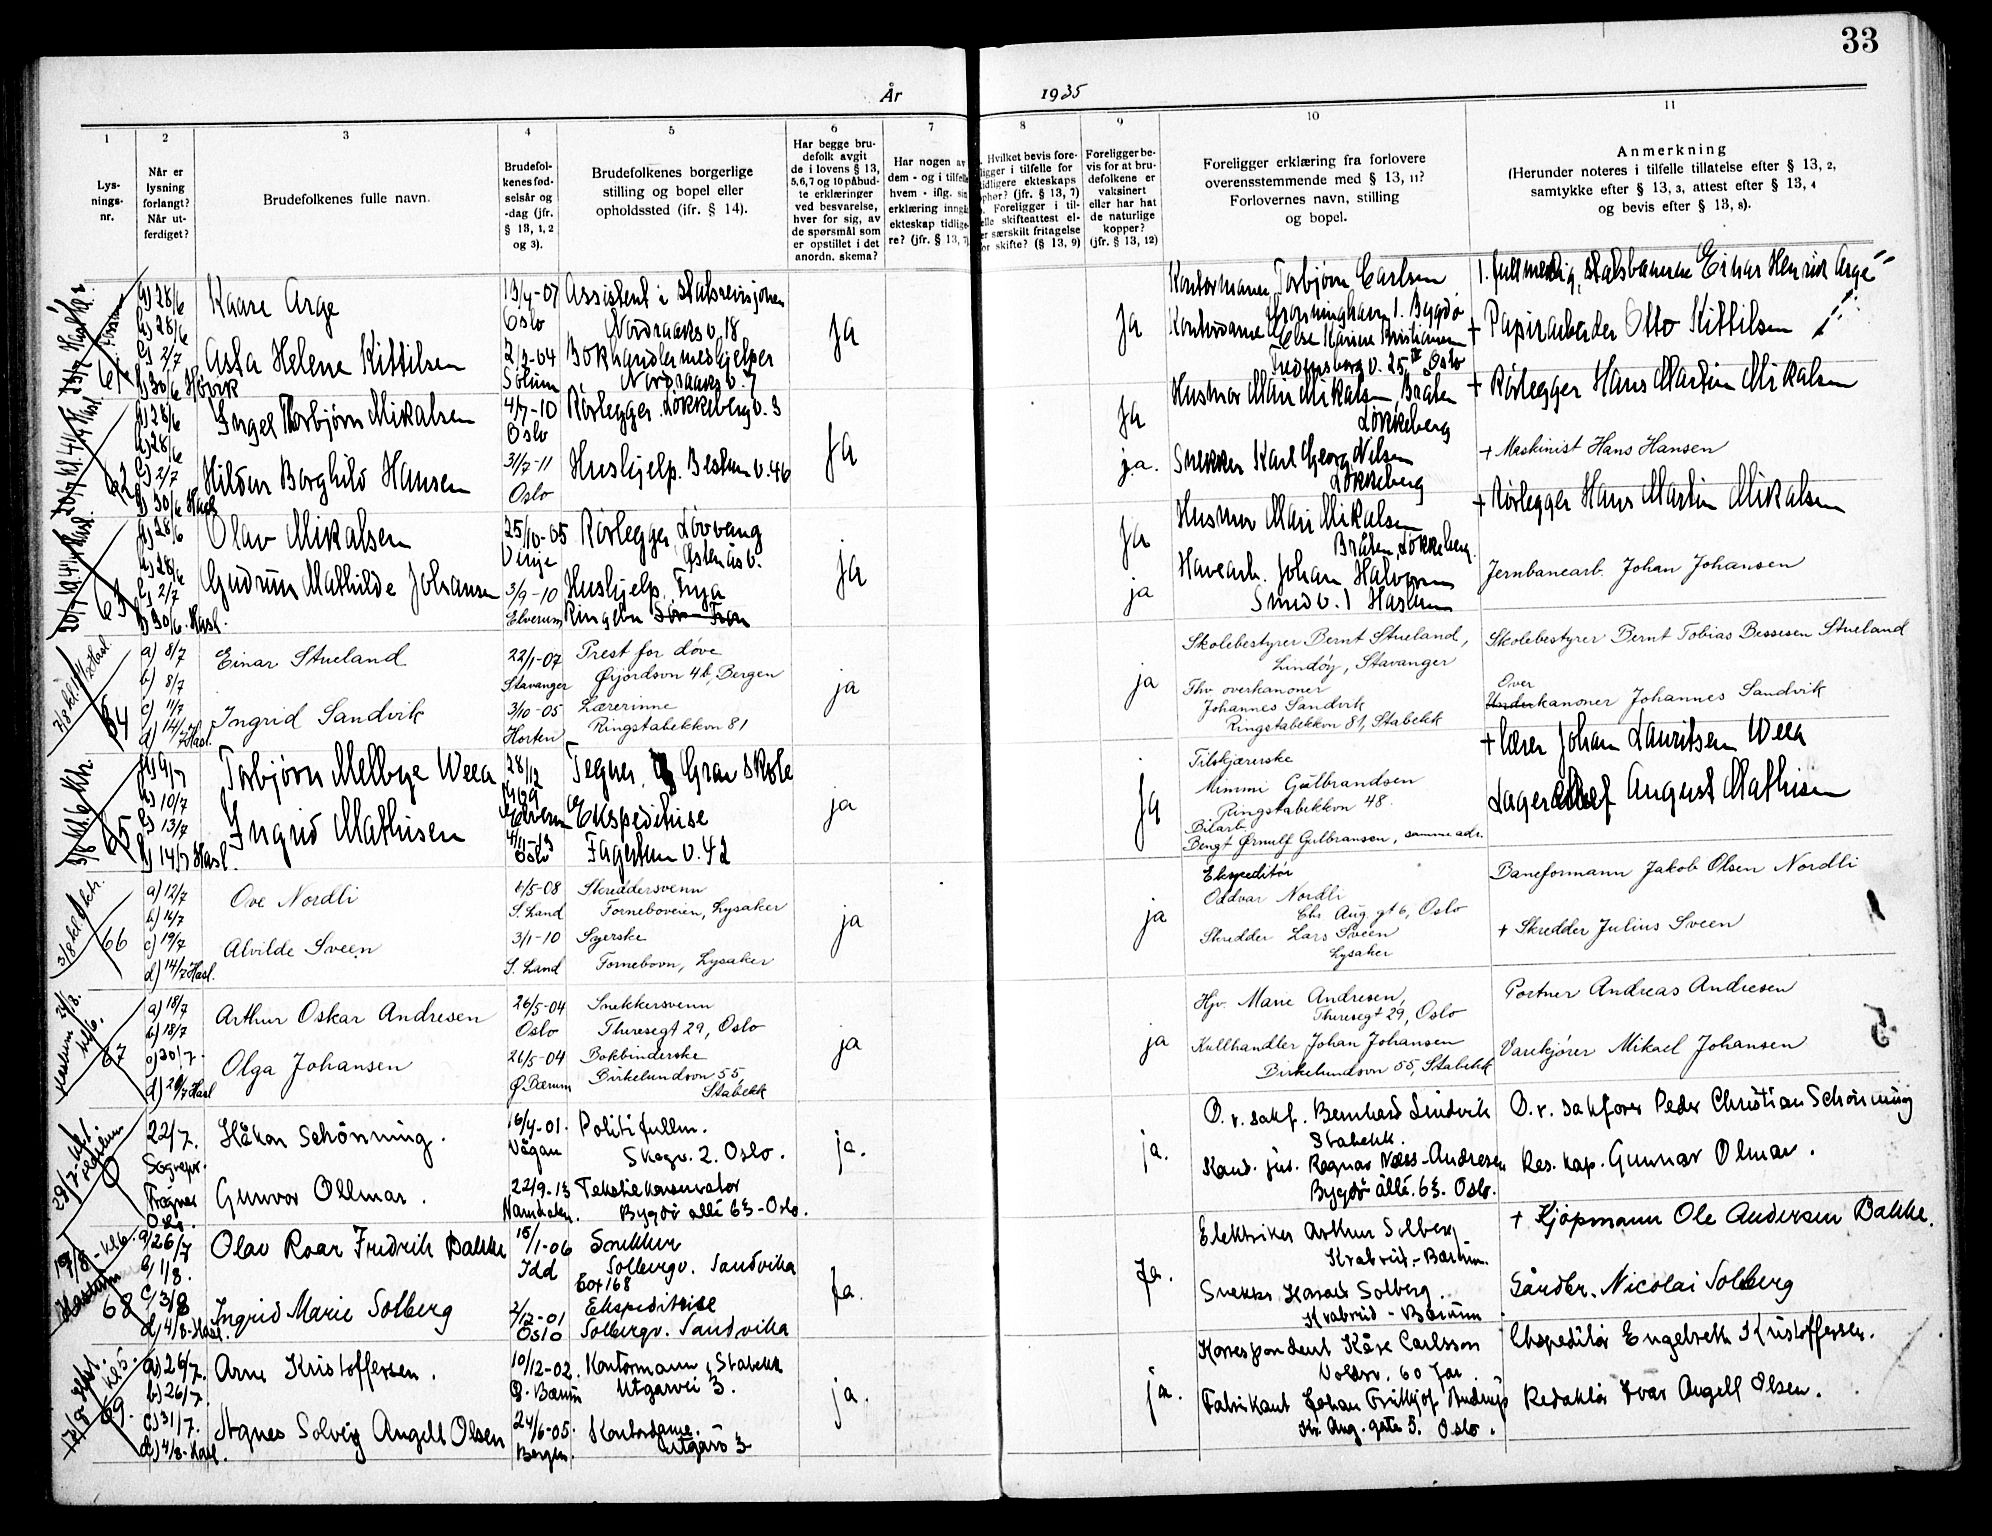 33
År 1935
1 2 3 4 5 6 7 8 9 10 11
Lys-
nings-
nr.
Når er
lysning
forlangt?
Når ut-
ferdiget?
Brudefolkenes fulle navn.
Brudefol-
kenes fød-
selsår og
-dag (jfr.
§ 13, 1, 2
og 3).
Brudefolkenes borgerlige
stilling og bopel eller
opholdssted (ifr. § 14).
Har begge bru-
defolk avgit
de i lovens § 13,
5,6,7 og 10 påbud-
te erklæringer
ved besvarelse,
hver for sig, av
de spørsmål som
er opstillet i det
anordn. skema?
Har nogen av
dem - og i tilfelle
hvem - iflg. sin
erklæring inngå
ekteskap tidlige-
re? (jfr. § 13, 7)
Hvilket bevis fore-
ligger i tilfelle for
tidligere ekteskaps
ophør? (jfr. § 13, 7)
Foreligger i til-
felle skifteattest el-
er særskilt fritagelse
for skifte? (§ 13, 9)
Foreligger be-
vis for at bru-
defolkene er
vaksinert
eller har hat
de naturlige
kopper?
(jfr. § 13, 12)
Foreligger erklæring fra forlovere
overensstemmende med § 13, 11?
Forlovernes navn, stilling
og bopel.
Anmerkning
(Herunder noteres i tilfelle tillatelse efter § 13, 2,
samtykke efter § 13, 3, attest efter § 13, 4
og bevis efter § 13, 8).
61
a) 28/6
b) 28/6
c) 2/7
d) 30/6 Høvik
Kaare Arge
13/4-07
Oslo
Assistent i statsrevisjonen
Nordraaks v. 18
Ja
Ja
Kontormann Torbjørn Carlsen
Dronninghavn 1. Bygdø
1. fullmektig, statsbanene Einar Henrik Arge
Asta Helene Kittilsen
2/3-04
Solum
Bokhandlermedhjelper
Nordraaks v. 7
Kontordame Else Karine Kristiansen
Fredensborg v. 25 Oslo
+ Papirarbeider Otto Kittilsen
62
a) 28/6
b) 28/6
c) 2/7
d) 30/6 Hasl
Ingel Torbjørn Mikalsen
4/7-10
Oslo
Rørlegger. Løkkeberg v. 3
Ja
Ja
Husmor Mari Mikalsen, Braaten
Løkkeberg
+ Rørlegger Hans Martin Mikalsen
Hildur Borghild Hansen
31/7-11
Oslo
Hushjelp. Bestum v. 46
ja.
Snekker Karl Georg Nilsen
Løkkeberg
+ Maskinist Hans Hansen
63
a) 28/6
b) 28/6
c) 2/7
d) 30/6. Hasl.
Olav Mikalsen
25/10-05
Vinje
Rørlegger Løvvang
Østenås v.
ja
Ja
Husmor Mari Mikalsen
Bråten, Løkkeberg.
+ Rørlegger Hans Martin Mikalsen
Gudrun Mathilde Johansen
3/9-10
Elverum
Hushjelp.
Ringebu
ja
Havearb. Johan Halvorsen
Smed v. 1 Haslum
Jernbanearb. Johan Johansen
64
a) 8/7
b) 8/7
c) 11/7
d) 14/7 Hasl.
Einar Stueland
22/1-07
Stavanger
Prest for døve
Ørjordsvn 4b, Bergen
ja
ja
Skolebestyrer Bernt Stueland,
Lindøy, Stavanger
Skolebestyrer Bernt Tobias Bessesen Stueland
Ingrid Sandvik
3/10-05
Horten
Lærerinne
Ringstabekkvn 81
Fhv. overkanoner
Johannes Sandvik
Ringstabekkvn 81, Stabekk
Over
Underkanoner Johannes Sandvik
65
a) 9/7
b) 10/7
c) 13/7
d) 14/7 Hasl.
Torbjørn Melbye Weea
28/12
1909
Elverum
Tegner, Gran skole
ja
Ja
Tilskjærerske
Mimmi Gulbrandsen
Ringstabekkvn 48.
+ lærer Johan Lauritsen Weea
Ingrid Mathisen
4/11-13
Oslo
Ekspeditrise
Fagertun v. 42
Bilarb.
Bengt Ørnulf Gulbransen, samme adr.
Lagerchef August Mathisen
66
a) 12/7
b) 16/7
c) 19/7
d) 14/7 Hasl.
Ove Nordli
4/5-08
S. Land
Skreddersvenn
Forneboveien, Lysaker
ja
ja
Ekspeditør
Oddvar Nordli
Chr. Aug. gt 6, Oslo
Baneformann Jakob Olsen Nordli
Alvilde Sveen
3/1-10
S. Land
Syerske
Fornebovn, Lysaker
Skredder Lars Sveen
Lysaker
+ Skredder Julius Sveen
67
a) 18/7
b) 18/7
c) 20/7.
d) 20/7 Hasl
Arthur Oskar Andresen
26/5-04
Oslo
Snekkersvenn
Theresegt 29, Oslo
ja
ja
Hjv. Marie Andresen,
Theresegt 29, Oslo
Portner Andreas Andresen
Olga Johansen
26/5-04
Ø. Bærum
Bokbinderske
Birkelundsvn 55
Stabekk
Kullhandler Johan Johansen
Birkelundsvn 55, Stabekk
Varekjører Mikael Johansen
22/7.
Sognepr.
Frogner
Oslo.
Håkon Schönning.
16/4-01.
Vågan
Politifullm.
Skogv. 2. Oslo.
ja.
ja.
O.r. sakf. Bernhard Lindvik
Stabekk.
O.r. sakfører Peder Christian Schönning
Gunvor Ollmar.
22/9-13
Namdalen.
Tekstilkonservator
Bygdø allé 63-Oslo.
Kand. jur. Ragnar Næss-Andresen
Bygdø allé. 63. Oslo.
Res. kap. Gunnar Olmar.
68
a) 26/7
b) 1/8.
c) 3/8
d) 4/8-Hasl.
Olav Roar Fredrik Bakke
15/1-06
Idd
Snekker
Solbergv. Sandvika
Box 168
Ja.
Ja.
Elektriker Arthur Solberg
Krabrud-Bærum.
+ Kjøpmann Ole Andersen Bakke.
Ingrid Marie Solberg
2/12-01
Oslo
Ekspeditrise
Solbergv. Sandvika
Snekker Harald Solberg.
Krabrud-Bærum
Gårdbr. Nicolai Solberg
69.
a) 26/7.
b) 26/7.
c) 31/7.
d) 4/8-Hasl.
Arne Kristoffersen.
10/12-02.
Ø. Bærum
Kontormann, Stabekk
Utgarvei 3.
ja.
ja.
Korrespondent Kåre Carlsson
Voldsv. 60 Jar.
Ekspeditør Engebreth Kristoffersen.
Agnes Solveig Angell Olsen
24/6-05.
Bergen.
Kontordame.
Utgarv 3
Fabrikant Johan Fritjof
Kr. Aug. gate 5. Oslo.
Redaktør Ivar Angell Olsen.